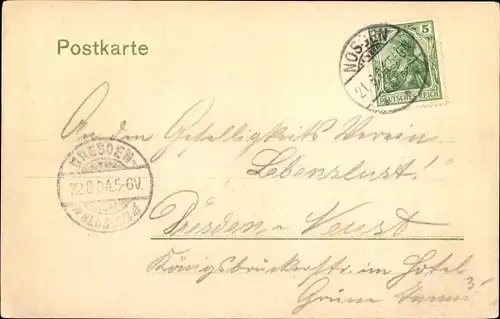 Postkarte
NOSSEN
21.
5
DEUTSCHES REICH
An den Geselligkeits Verein
DRESDEN-
Lebenslust!
22.8.04.5-6V.
Dresden-Neust
Königsbrückerstr. im Hotel
Grüne